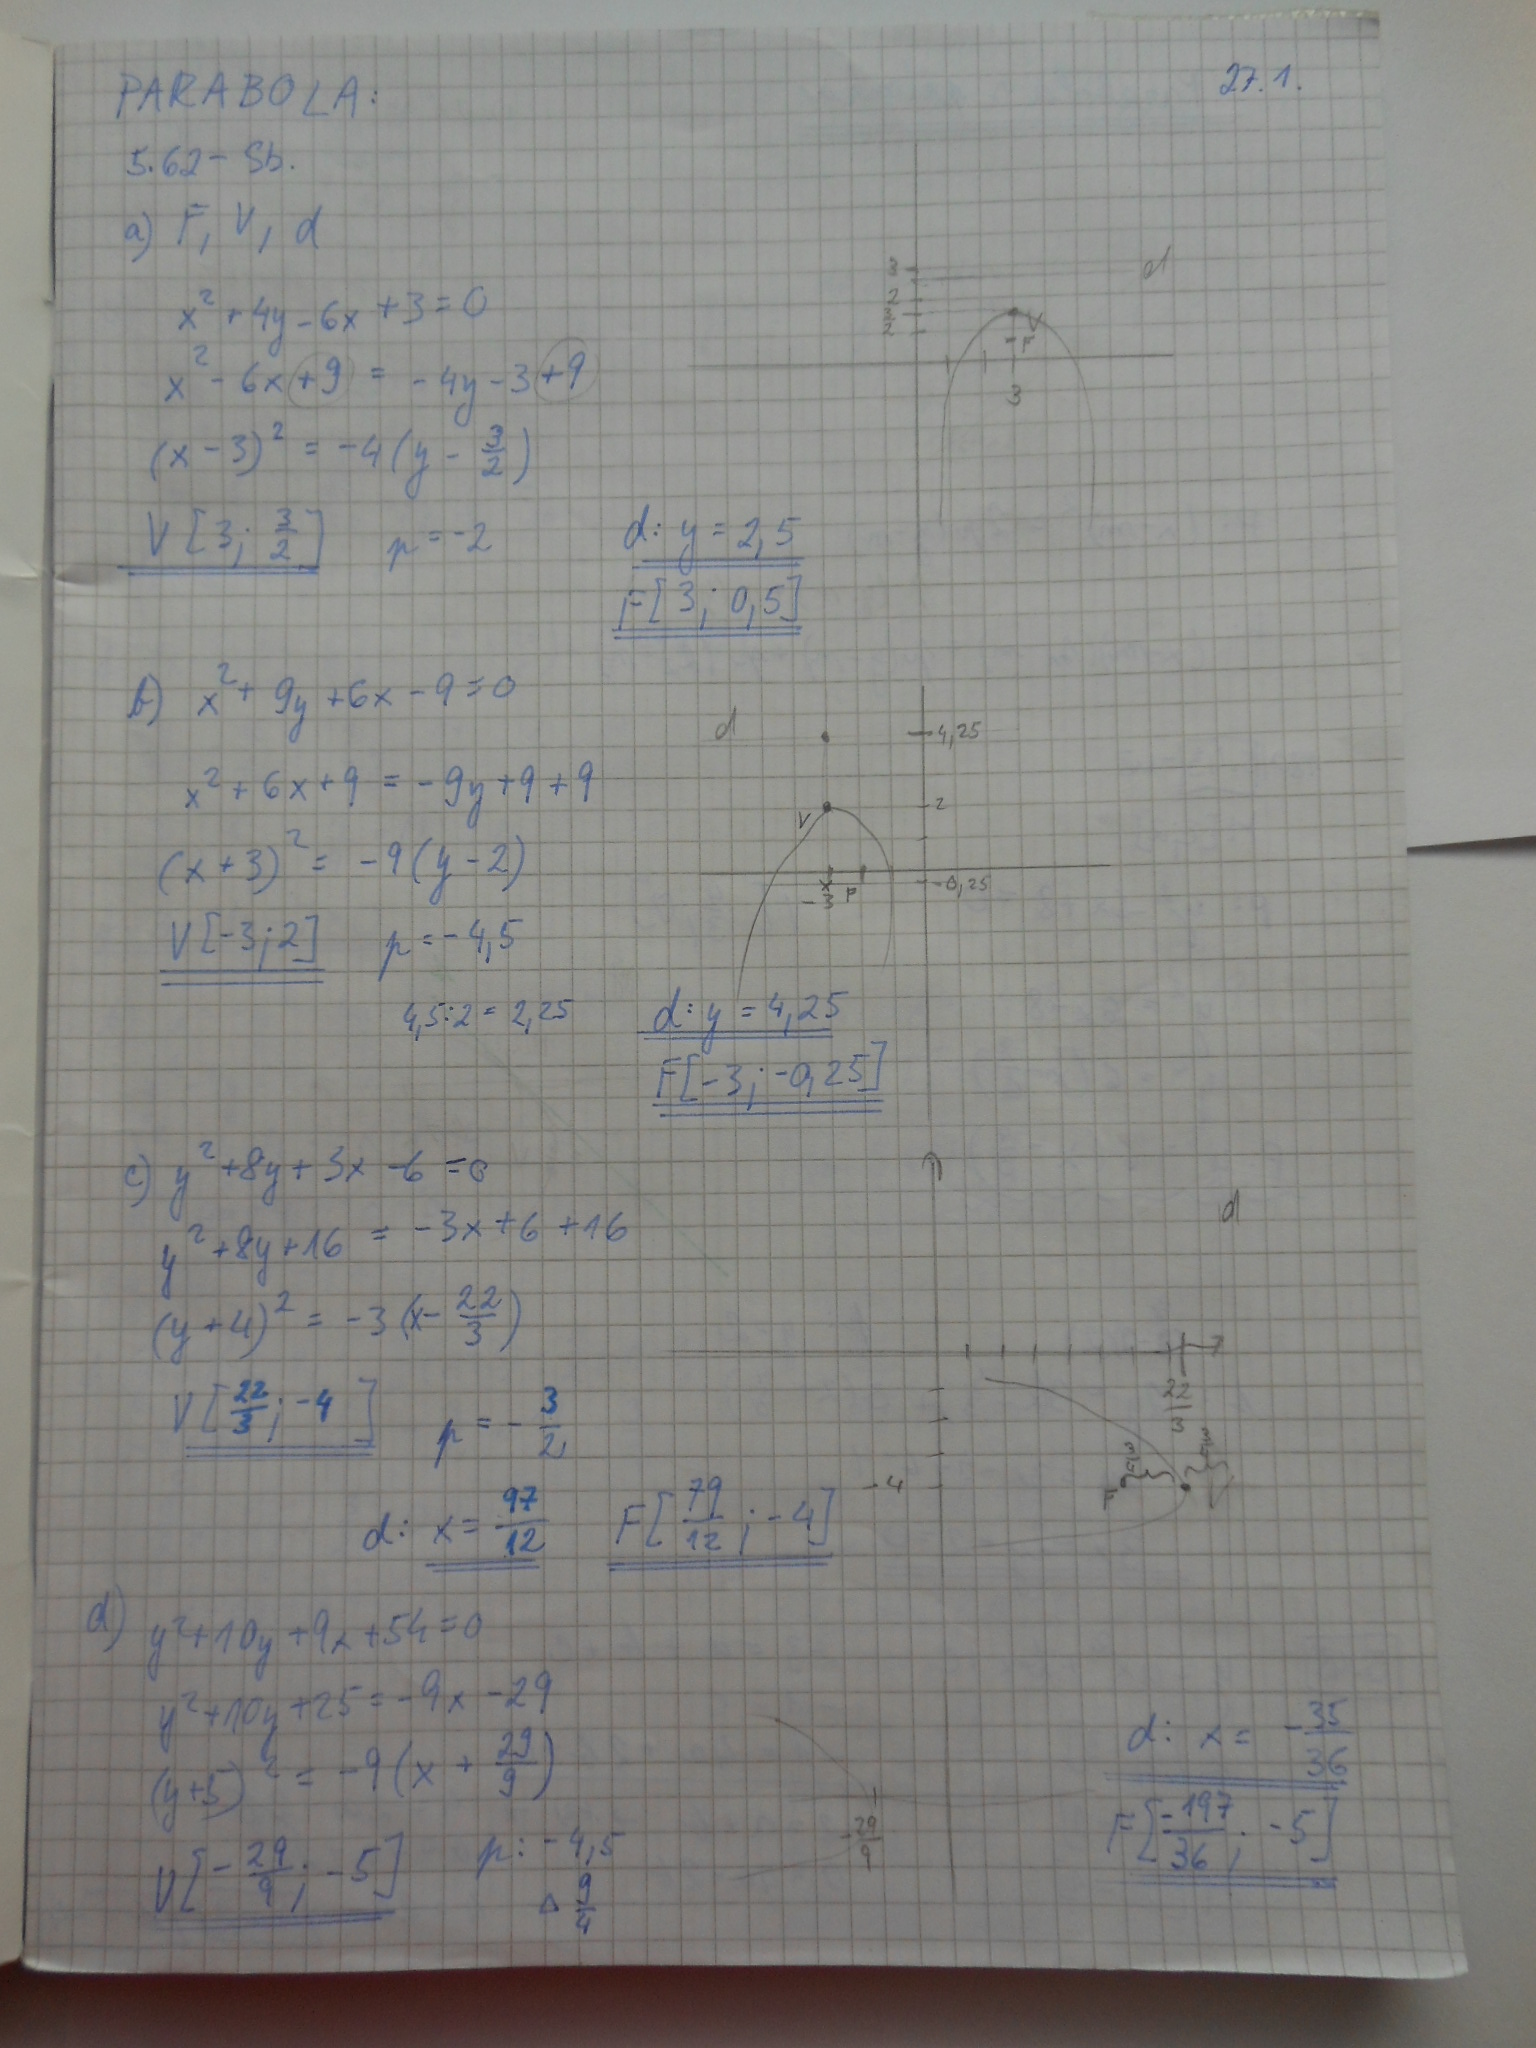 PARABOLA:
27.1.
5.62 - Sb.
a) F, V, d
x² + 4y - 6x + 3 = 0
x² - 6x + 9 = - 4y - 3 + 9
(x - 3)² = -4 (y - 3/2)
V [3; 3/2] p = -2
d: y = 2,5
F[3; 0,5]
3
d
2
3/2
V
F
3
b) x² + 9y + 6x - 9 = 0
x² + 6x + 9 = - 9y + 9 + 9
(x + 3)² = -9 (y - 2)
V [-3; 2] p = - 4,5
4,5 : 2 = 2,25
d: y = 4,25
F[-3; -0,25]
d
4,25
2
V
-3
F
-0,25
c) y² + 8y + 3x - 6 = 0
y² + 8y + 16 = - 3x + 6 + 16
(y + 4)² = -3 (x - 22/3)
V [22/3; -4] p = - 3/2
d: x = 97/12 F[79/12; -4]
d
22/3
-4
F
3/4
3/4
d) y² + 10y + 9x + 54 = 0
y² + 10y + 25 = -9x - 29
(y + 5)² = -9 (x + 29/9)
V [- 29/9; -5] p: -4,5
9/4
-29/9
d: x = -35/36
F[-197/36; -5]